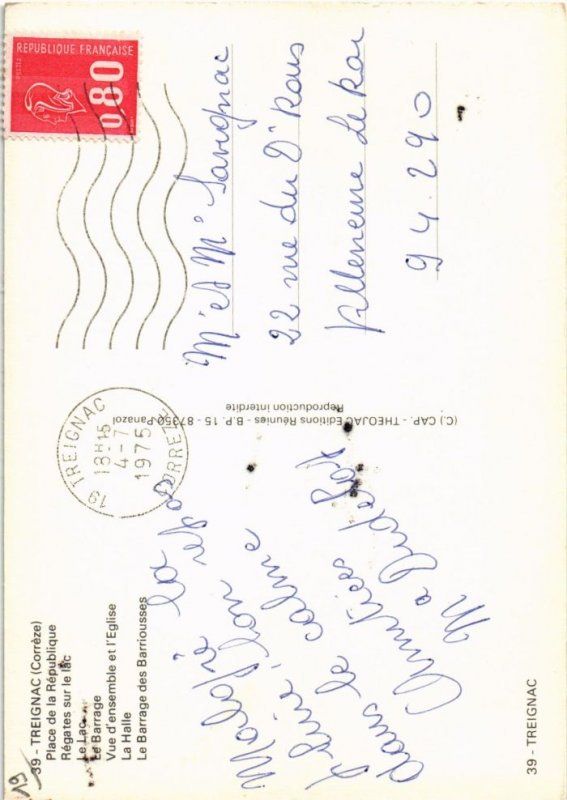 39 - TREIGNAC (Corrèze)
Place de la République
Régates sur le lac
Le Lac
Le Barrage
Vue d'ensemble et l'Eglise
La Halle
Le Barrage des Barriousses
Malgré la
dans le calme
Amitiés
39 - TREIGNAC
(C) CAP. - THEOJAC Editions Réunies - B.P. 15 - 87350 Panazol
Reproduction interdite
19 TREIGNAC
18H15
4-7
1975
CORREZE
REPUBLIQUE FRANÇAISE
0,80
Mr et Me Savignac
22 rue du Dr Roux
Villeneuve Le Roi
94.290